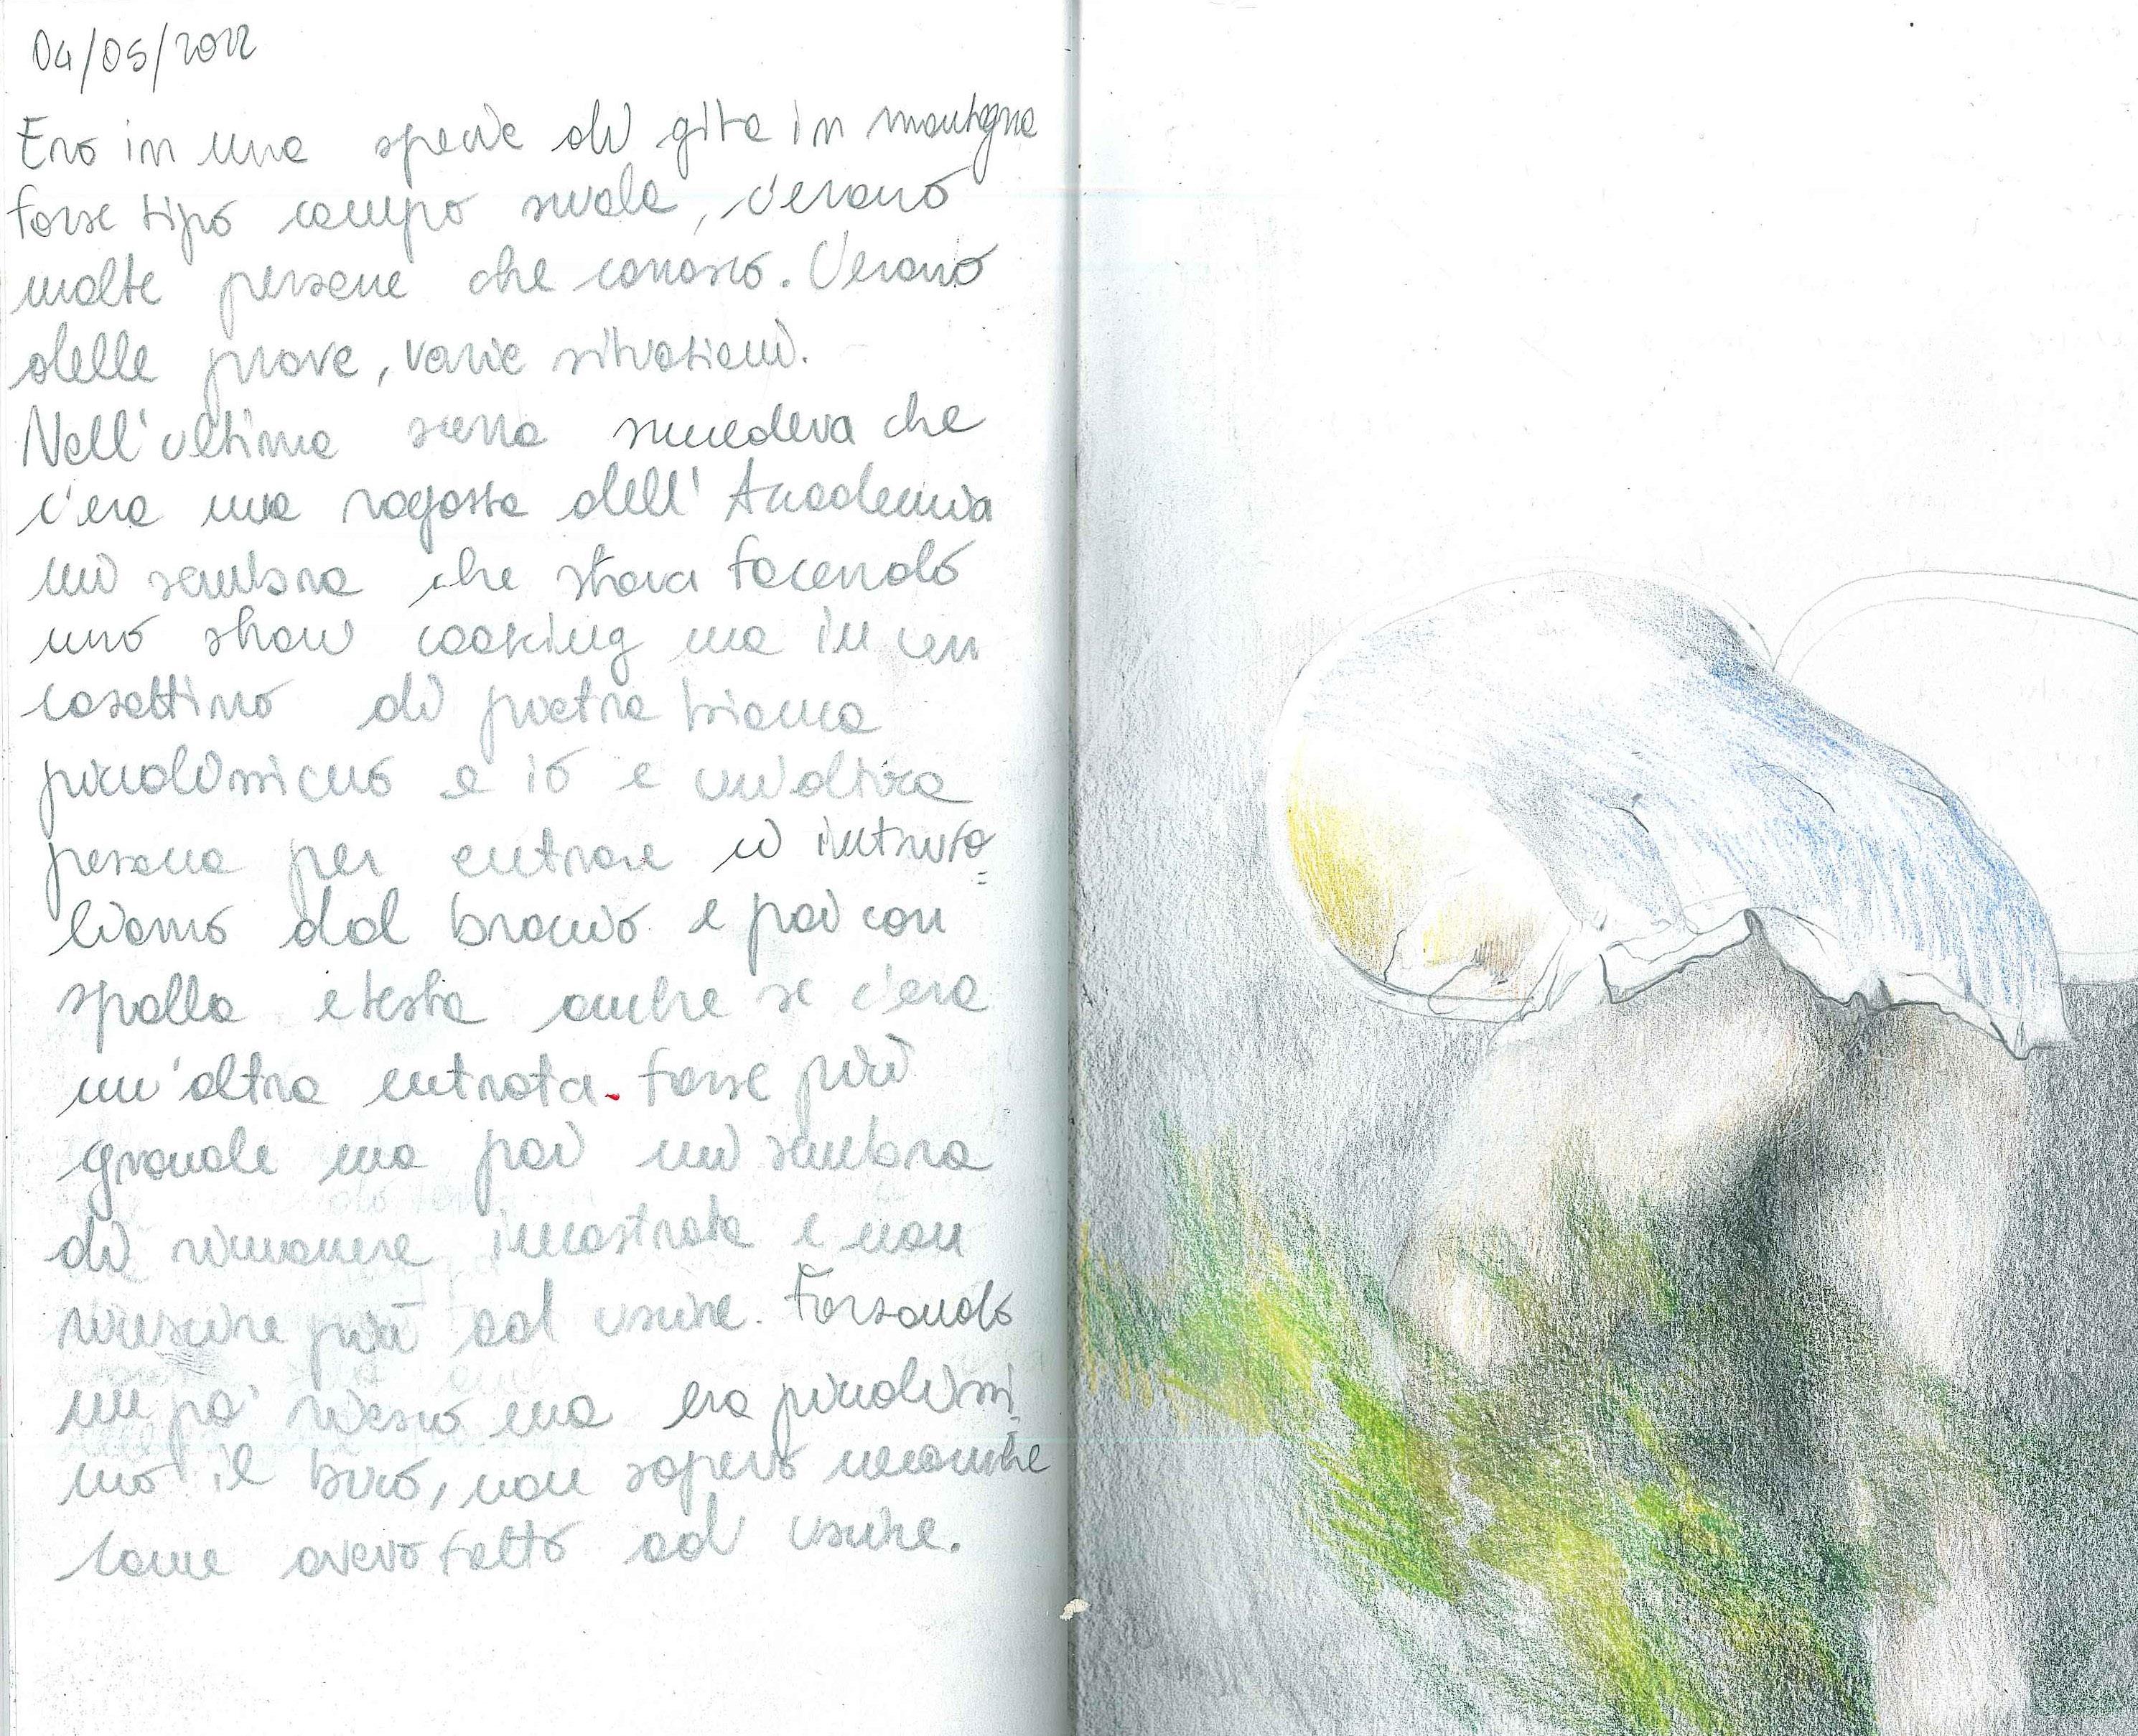 04/05/2022
Ero in una specie di gita in montagna
forse tipo campo scuola, c'erano
molte persone che conosco. C'erano
delle prove, varie situazioni.
Nell'ultima scena succedeva che
c'era una ragazza dell'Accademia
mi sembra che stava facendo
uno show cooking ma in un
casottino di pietra bianca
piccolissimo e io e un'altra
persona per entrare ci intrufo=
liamo dal braccio e poi con
spalla e testa anche se c'era
un'altra entrata. forse più
grande ma poi mi sembra
di rimanere incastrata e non
riuscire più ad uscire. Forzando
un po' riesco ma era piccolissi
mo il buco, non sapevo neanche
come avevo fatto ad uscire.